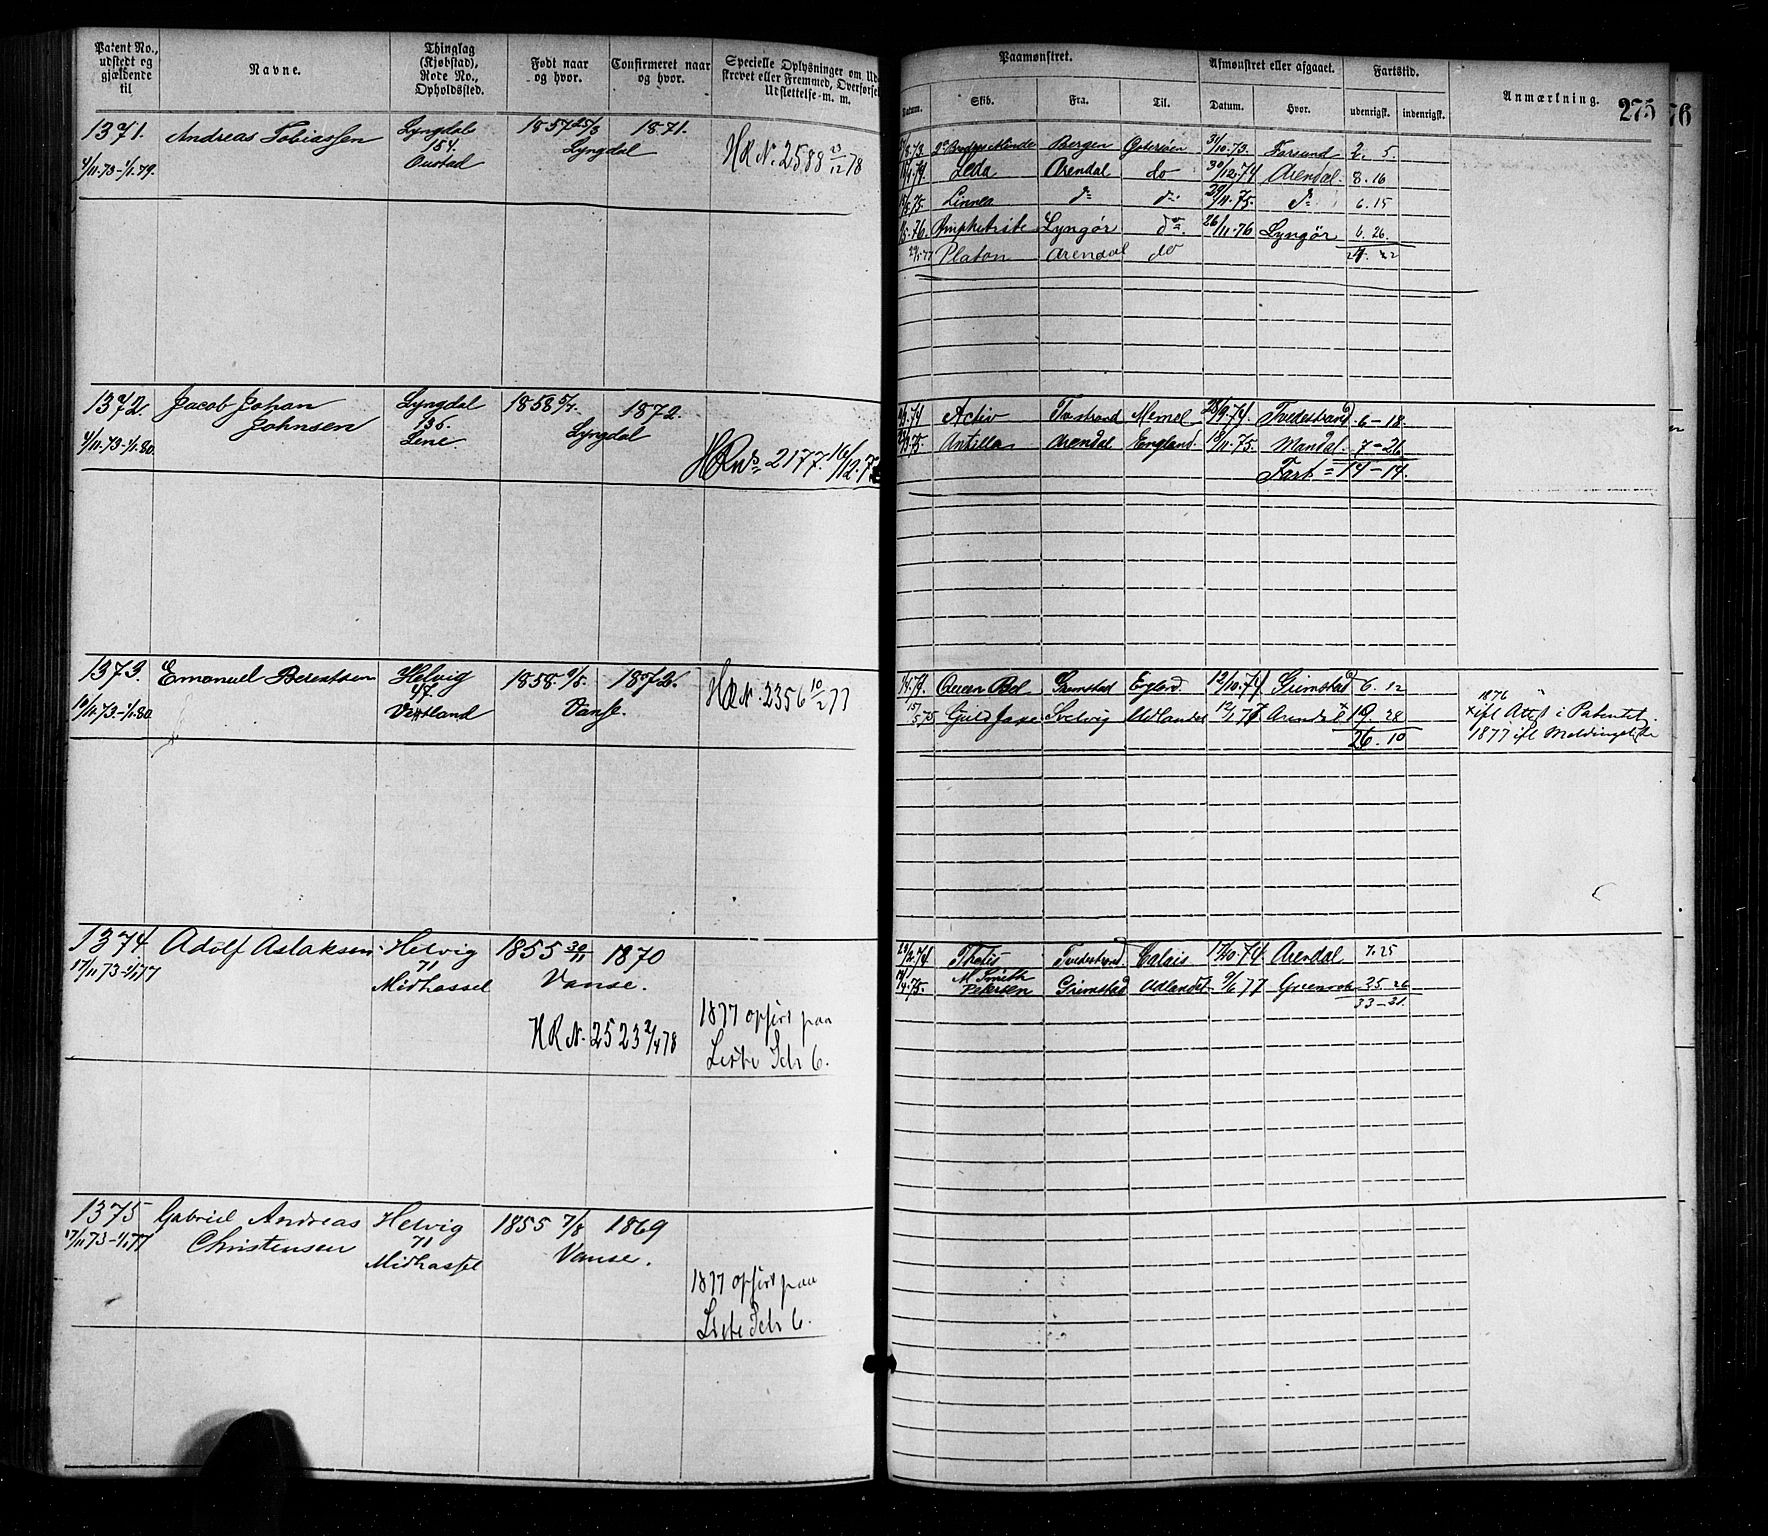 Patent No., udstedt og gjældende til
Navne.
Thinglag (Kjøbstad), Rode No., Opholdssted.
Født naar og hvor.
Confirmeret naar og hvor.
Specielle Oplysninger om Ud
skrevet eller Fremmed, Overførsel
Udslettelse m. m.
Paamønstret.
Afmønstret eller afgaaet.
Fartstid.
Anmærkning.
275
76
Datum.
Skib.
Fra.
Til.
Datum.
Hvor.
udenrigsk.
indenrigsk.
1371.
4/11.73-1/1.79.
Andreas Tobiassen
Lyngdal
154.
1857 25/3
Lyngdal
1871.
HR N. 2588 23/12 78
Bergen Østersøen 31/10.73. Farsund 2. 5.
Leda Arendal do 30/12.74 Arendal. 8. 16
Linnea do do 29/11.75. do 6. 15
Amphitrite Lyngør do 26/11.76 Lyngør 6. 26.
29/5 77 Platon Arendal do
1372.
4/11.73-1/1.80.
Jacob Johan
Johnsen
Lyngdal
136.
Lene.
1858
Lyngdal
1872.
HR No 2177. 16/12.
Activ Tvestrand Memel 28/9.74 Tvedestrand 6-18.
Antilla Arendal England. 75. Mandal. 7-26
Fart = 14-14.
1373.
10/11.73-1/1.80.
Emanuel Berentsen
Helvig
47.
Vatland
1858.
Vanse.
1872.
HR N. 2356 10/2 77
Queen Bel Grimstad England. 12/10.74 Grimstad 6. 12
15/5 75 Guldfaxe Svelvig Udlandet 12/1 77 Arendal x 19. 28
26. 10
1876
x ifl Attest i Patentet.
1877 ifl Meldingsliste
1374
17/11 73-1/1 77
Adolf Aslaksen.
Helvig
71
Midhassel
1855 30/11
Vanse.
1870
HR N. 2523 2/4 78
1877 opført paa
Liste Pch 6.
Thetis Tvedestrand. Calais 17/10.74 Arendal 7. 25
M Smith
Petersen Grimstad Udlandet 9/6 77 Greenock 25 26
33-21.
1375
17/11 73-1/1 77
Gabriel Andreas
Christensen
Helvig
71
Midhassel
1855 7/8
Vanse.
1869
1877 opført paa
Liste Pch 6.